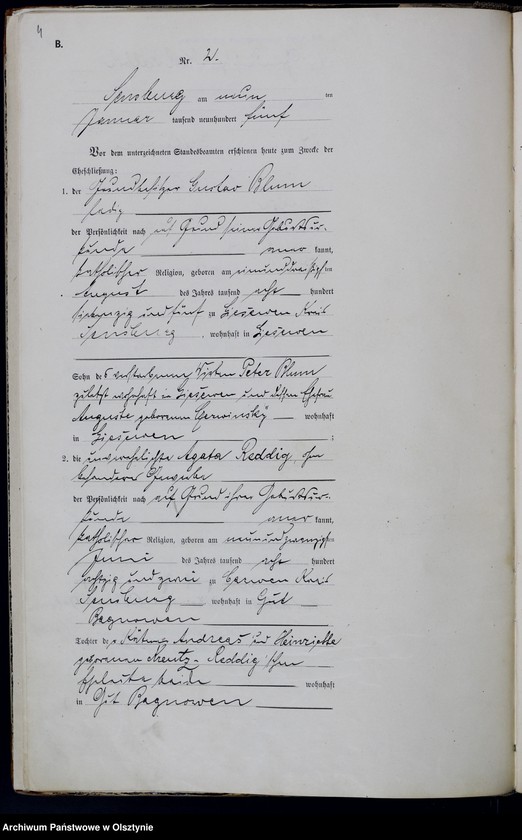 4
B.
Nr. 2.
Sensburg am neun ten
Januar tausend neunhundert fünf
Vor dem unterzeichneten Standesbeamten erschienen heute zum Zwecke der
Eheschließung:
1. der Grundbesitzer Gustav Blum
ledig
der Persönlichkeit nach auf Grund seiner Geburtsur-
kunde aner kannt,
katholischer Religion, geboren am einunddreißigsten
August des Jahres tausend acht hundert
siebenzig und fünf zu Kreis
Sensburg, wohnhaft in
Sohn des verstorbenen Wirten Peter Blum
zuletzt wohnhaft in und dessen Ehefrau
Auguste geborenen Gerwinsky wohnhaft
in ;
2. die unverehelichte Agata Reddig, ohne
besonderes Gewerbe
der Persönlichkeit nach auf Grund ihrer Geburtsur-
kunde aner kannt,
katholischer Religion, geboren am neunundzwanzigsten
Juni des Jahres tausend acht hundert
achtzig und zwei zu Kreis
Sensburg wohnhaft in Gut
Bagnowen
Tochter der Andreas und Henriette
geborenen Reddig'schen
Eheleute beide wohnhaft
in Gut Bagnowen
Archiwum Państwowe w Olsztynie